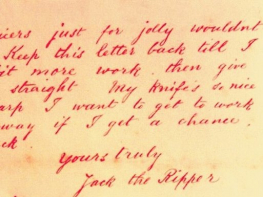 icers just for jolly wouldnt
Keep this letter back till I
it more work. then give
straight My knife's so nice
arp I want to get to work
way if I get a chance.
ck.
yours truly
Jack the Ripper